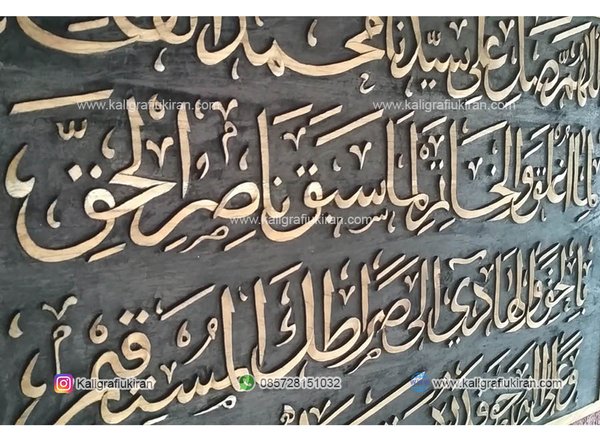 اللهم صل على سيدنا محمد
www.kaligrafiukiran.com
www.kaligrafiukiran.com
لما اغلق والخاتم لما سبق ناصر الحق
www.kaligrafiukiran.com
بالحق والهادي الى صراطك المستقيم
وعلى اله حق
Kaligrafiukiran
085728151032
www.kaligrafiukiran.com